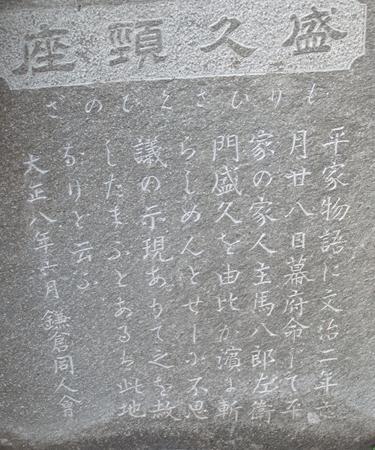 盛久頸座
もりひさくびのざ
平家物語に文治二年六
月廿八日幕府命じて平
家の家人主馬八郎左衛
門盛久を由比が濱に斬
らしめんとせしに不思
議の示現ありて之を赦
したまふとあるは此地
なりと云ふ
大正八年六月 鎌倉同人會